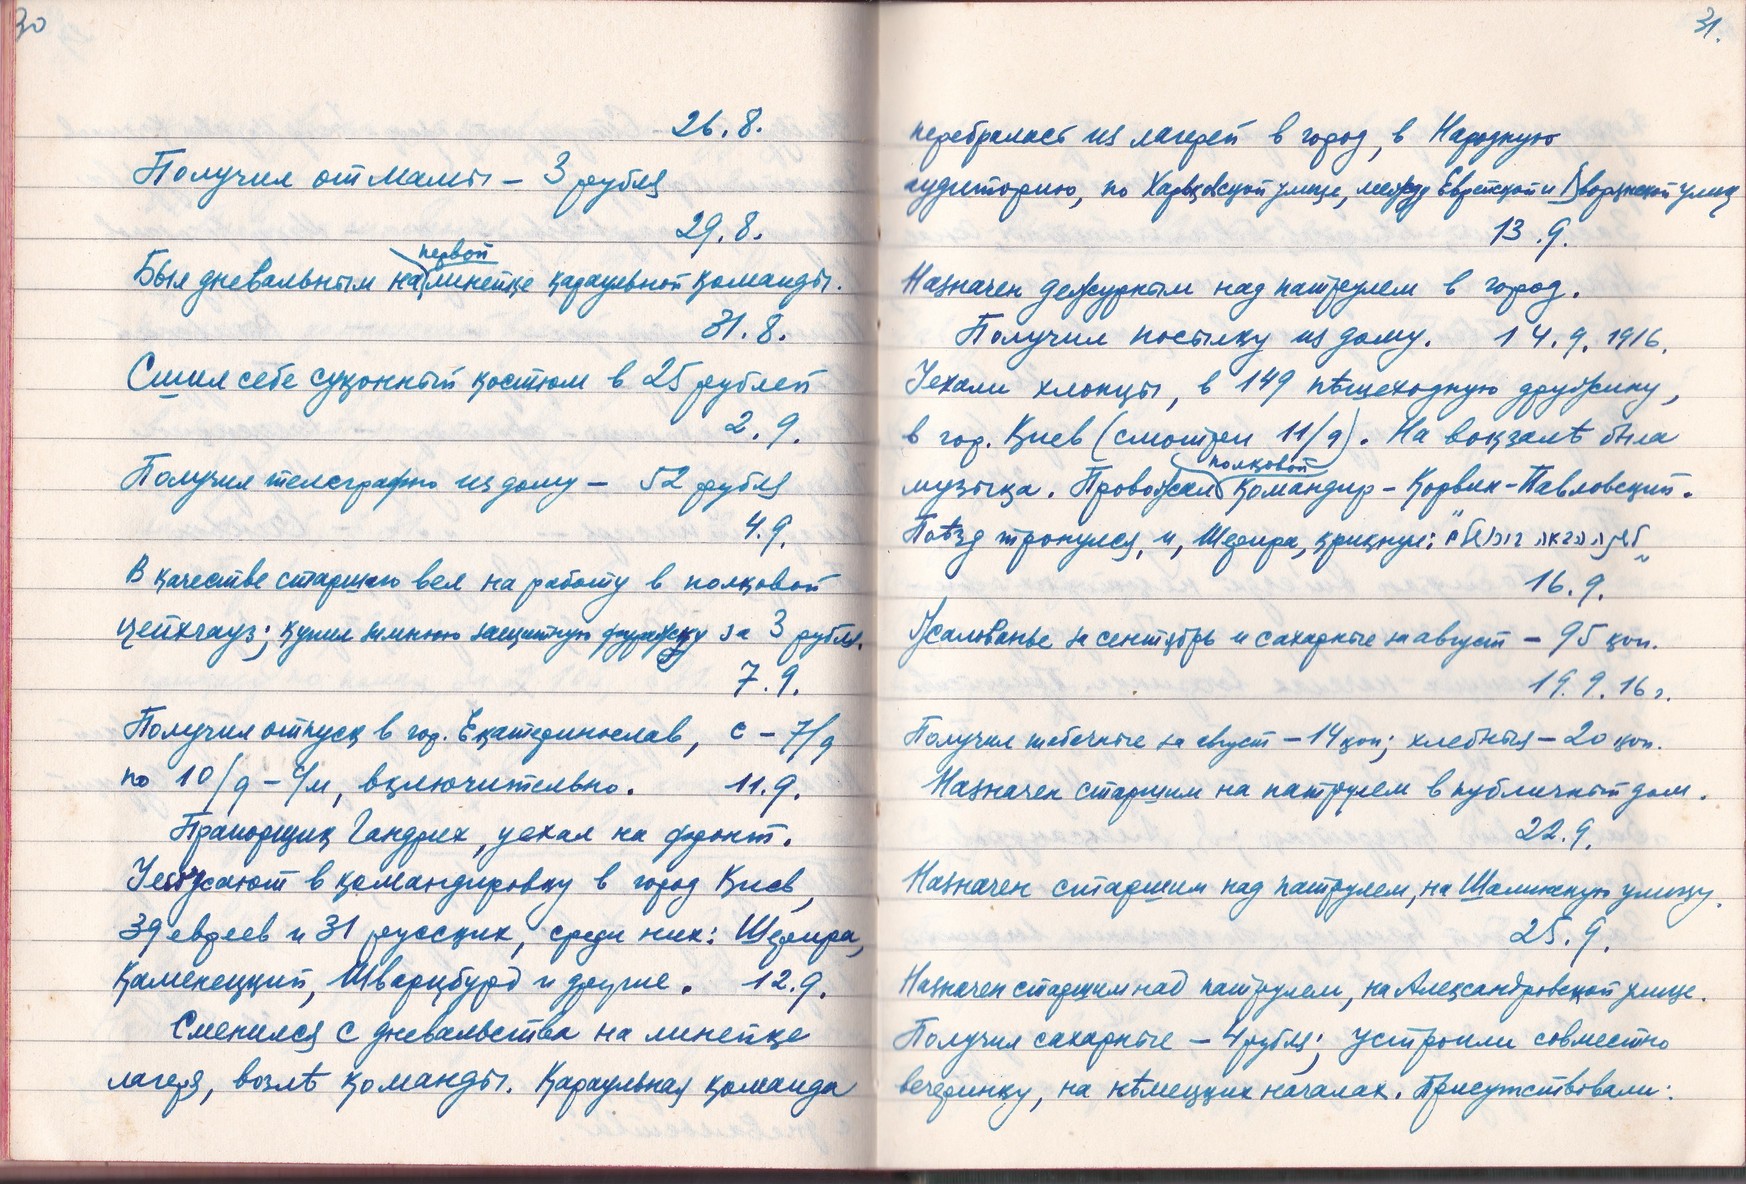 30
26.8.
Получил от мамы – 3 рубля
29.8.
первой
Был дневальным на линейке караульной команды.
31.8.
Сшил себе суконный костюм в 25 рублей
2.9.
Получил телеграфно из дому – 52 рубля
4.9.
В качестве старшего вел на работу в полковой
цейхгауз; купил зимнюю защитную фуражку за 3 рубля.
7.9.
Получил отпуск в гор. Екатеринослав, с – 7/9
по 10/9 – с/м, включительно. 11.9.
Прапорщик Гандрих, уехал на фронт.
Уезжают в командировку в город Киев,
39 евреев и 31 русских, среди них: Шефира,
Каменецкий, Шварцбурд и другие. 12.9.
Сменился с дневальства на линейке
лагеря, возлѣ команды. Караульная команда
31.
перебралась из лагерей в город, в Народную
аудиторию, по Харьковской улице, между Еврейской и Дворянской улиц
13.9.
Назначен дежурным над патрулем в город.
Получил посылку из дому. 14.9.1916.
Уехали хлопцы, в 149 пѣшеходную дружину,
в гор. Киев (смотри 11/9). На вокзалѣ была
полковой
музыка. Провожал командир – Корвин-Павловский.
Поѣзд тронулся, и, Шефира, крикнул:
16.9.
Жалованье за сентябрь и сахарные за август – 95 коп.
19.9.16 г.
Получил табачные за август – 14 коп; хлебныя – 20 коп.
Назначен старшим на патрулем в публичный дом.
22.9.
Назначен старшим над патрулем, на улицу.
25.9.
Назначен старшим над патрулем, на Александровской улице.
Получил сахарные – 4 рубля; устроили совместно
вечеринку, на нѣмецких началах. Присутствовали: